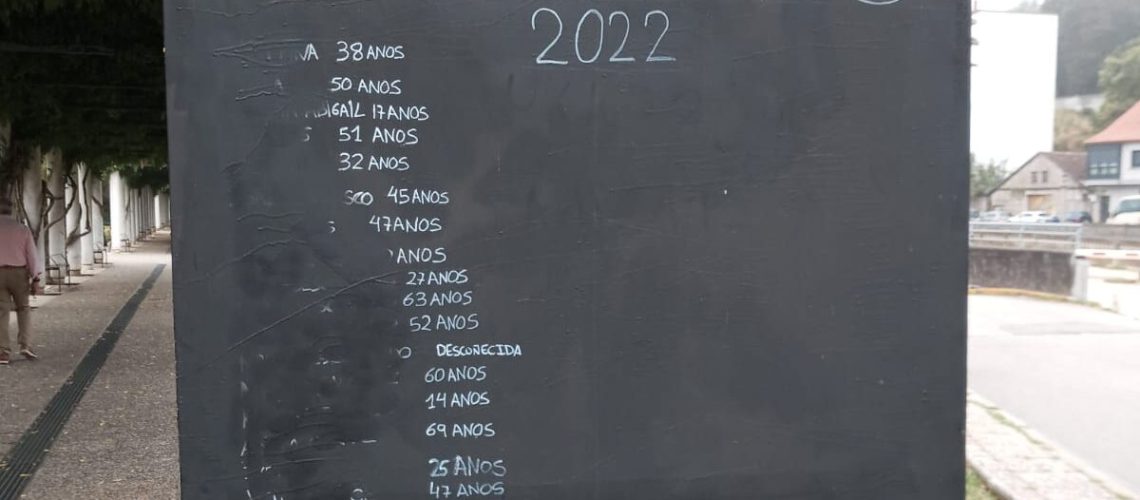 2022
38 ANOS
50 ANOS
17 ANOS
51 ANOS
32 ANOS
45 ANOS
47 ANOS
ANOS
27 ANOS
63 ANOS
52 ANOS
DESCOÑECIDA
60 ANOS
14 ANOS
69 ANOS
25 ANOS
47 ANOS